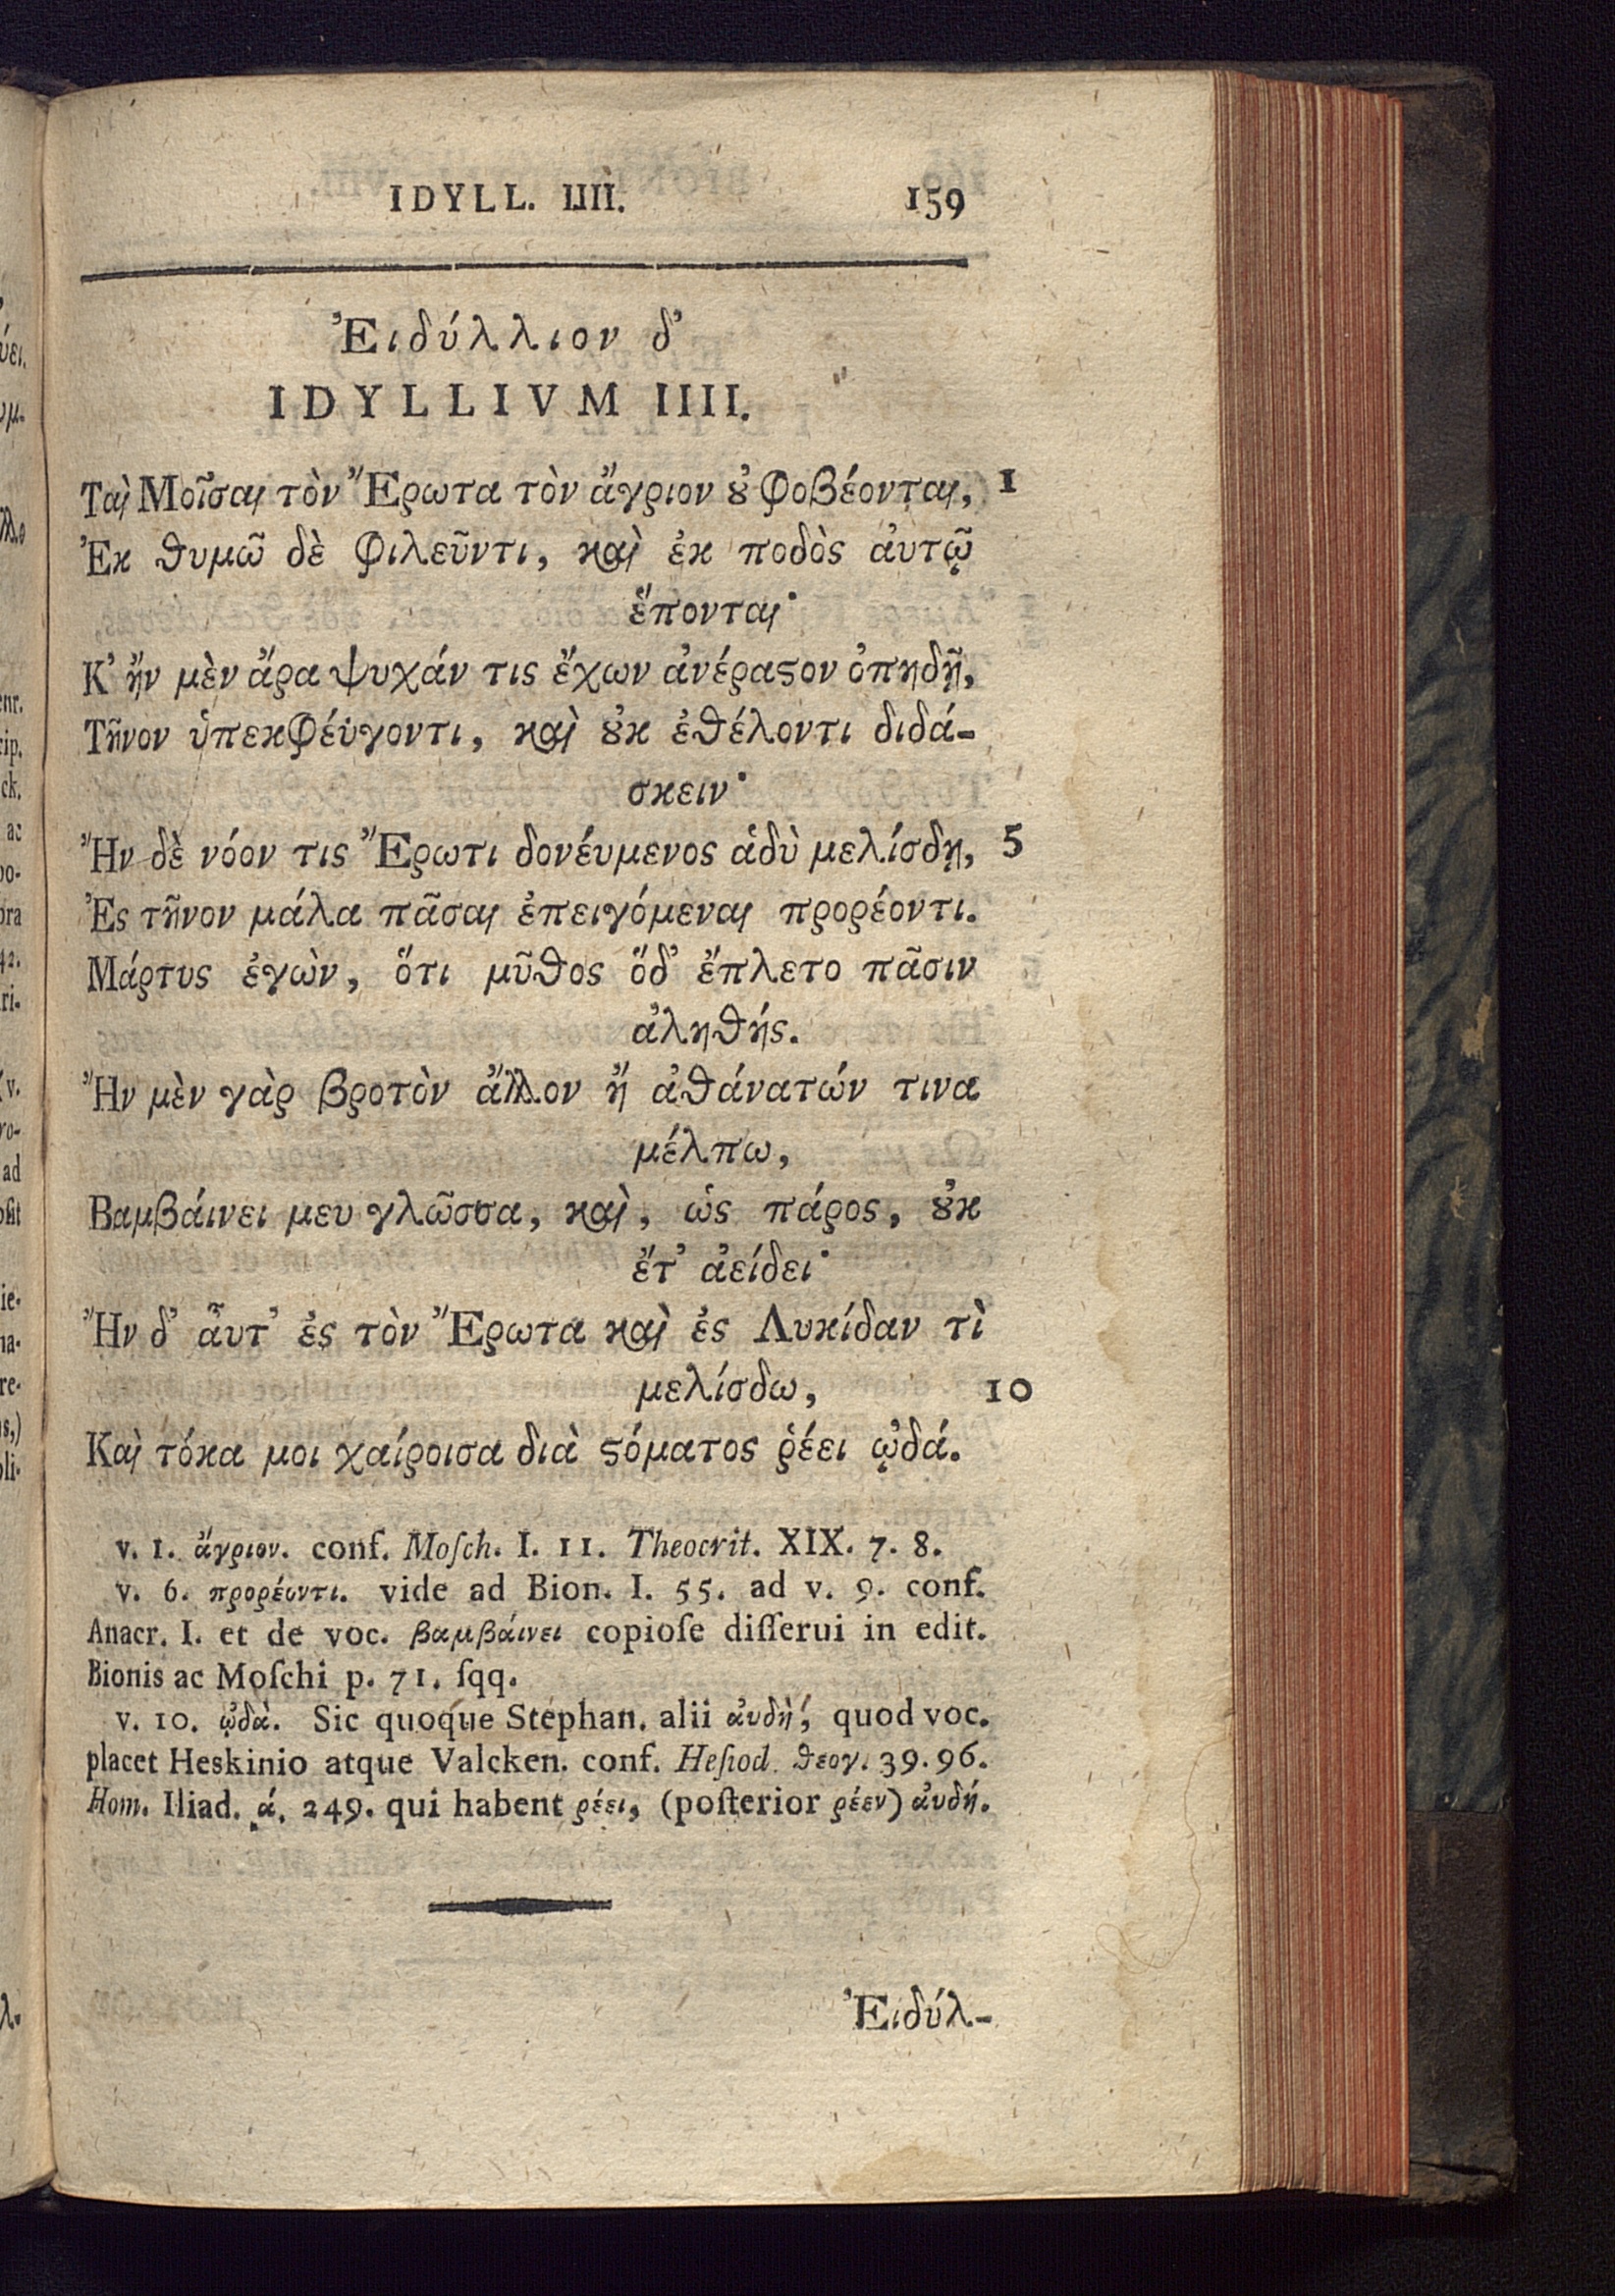 IDYLL. IIII. 159
Ἐιδύλλιον δ’
IDYLLIVM IIII.
Ταὶ Μοῖσαι τὸν Ἔρωτα τὸν ἄγριον ȣ̓ φοβέονται, 1
Ἐκ θυμῶ δὲ φιλεῦντι, καὶ ἐκ ποδὸς ἀυτῷ
ἕπονται·
Κ’ ἢν μὲν ἄρα ψυχάν τις ἔχων ἀνέραϛον ὀπηδῇ,
Τῆνον ὑπεκφέυγοντι, καὶ ȣ̓κ ἐθέλοντι διδά-
σκειν·
Ἢν δὲ νόον τις Ἔρωτι δονέυμενος ἁδὺ μελίσδῃ, 5
Ἐς τῆνον μάλα πᾶσαι ἐπειγόμεναι προρέοντι.
Μάρτυς ἐγὼν, ὅτι μῦθος ὅδ’ ἔπλετο πᾶσιν
ἀληθής.
Ἢν μὲν γὰρ βροτὸν ἄλλον ἢ ἀθάνατών τινα
μέλπω,
Βαμβάινει μευ γλῶσσα, καὶ, ὡς πάρος, ȣ̓κ
ἔτ’ ἀείδει·
Ἢν δ’ ἆυτ’ ἐς τὸν Ἔρωτα καὶ ἐς Λυκίδαν τὶ
μελίσδω, 10
Καὶ τόκα μοι χαίροισα διὰ ϛόματος ῥέει ᾠδά.
v. 1. ἄγριον. conf. Moſch. I. 11. Theocrit. XIX. 7. 8.
v. 6. προρέοντι. vide ad Bion. I. 55. ad v. 9. conf.
Anacr. I. et de voc. βαμβάινει copioſe diſſerui in edit.
Bionis ac Moſchi p. 71. ſqq.
v. 10. ᾠδὰ. Sic quoque Stephan. alii ἀυδὴ, quod voc.
placet Heskinio atque Valcken. conf. Heſiod. θεογ. 39. 96.
Hom. Iliad. ά. 249. qui habent ῥέει, (poſterior ῥέεν) ἀυδή.
Ἐιδύλ-